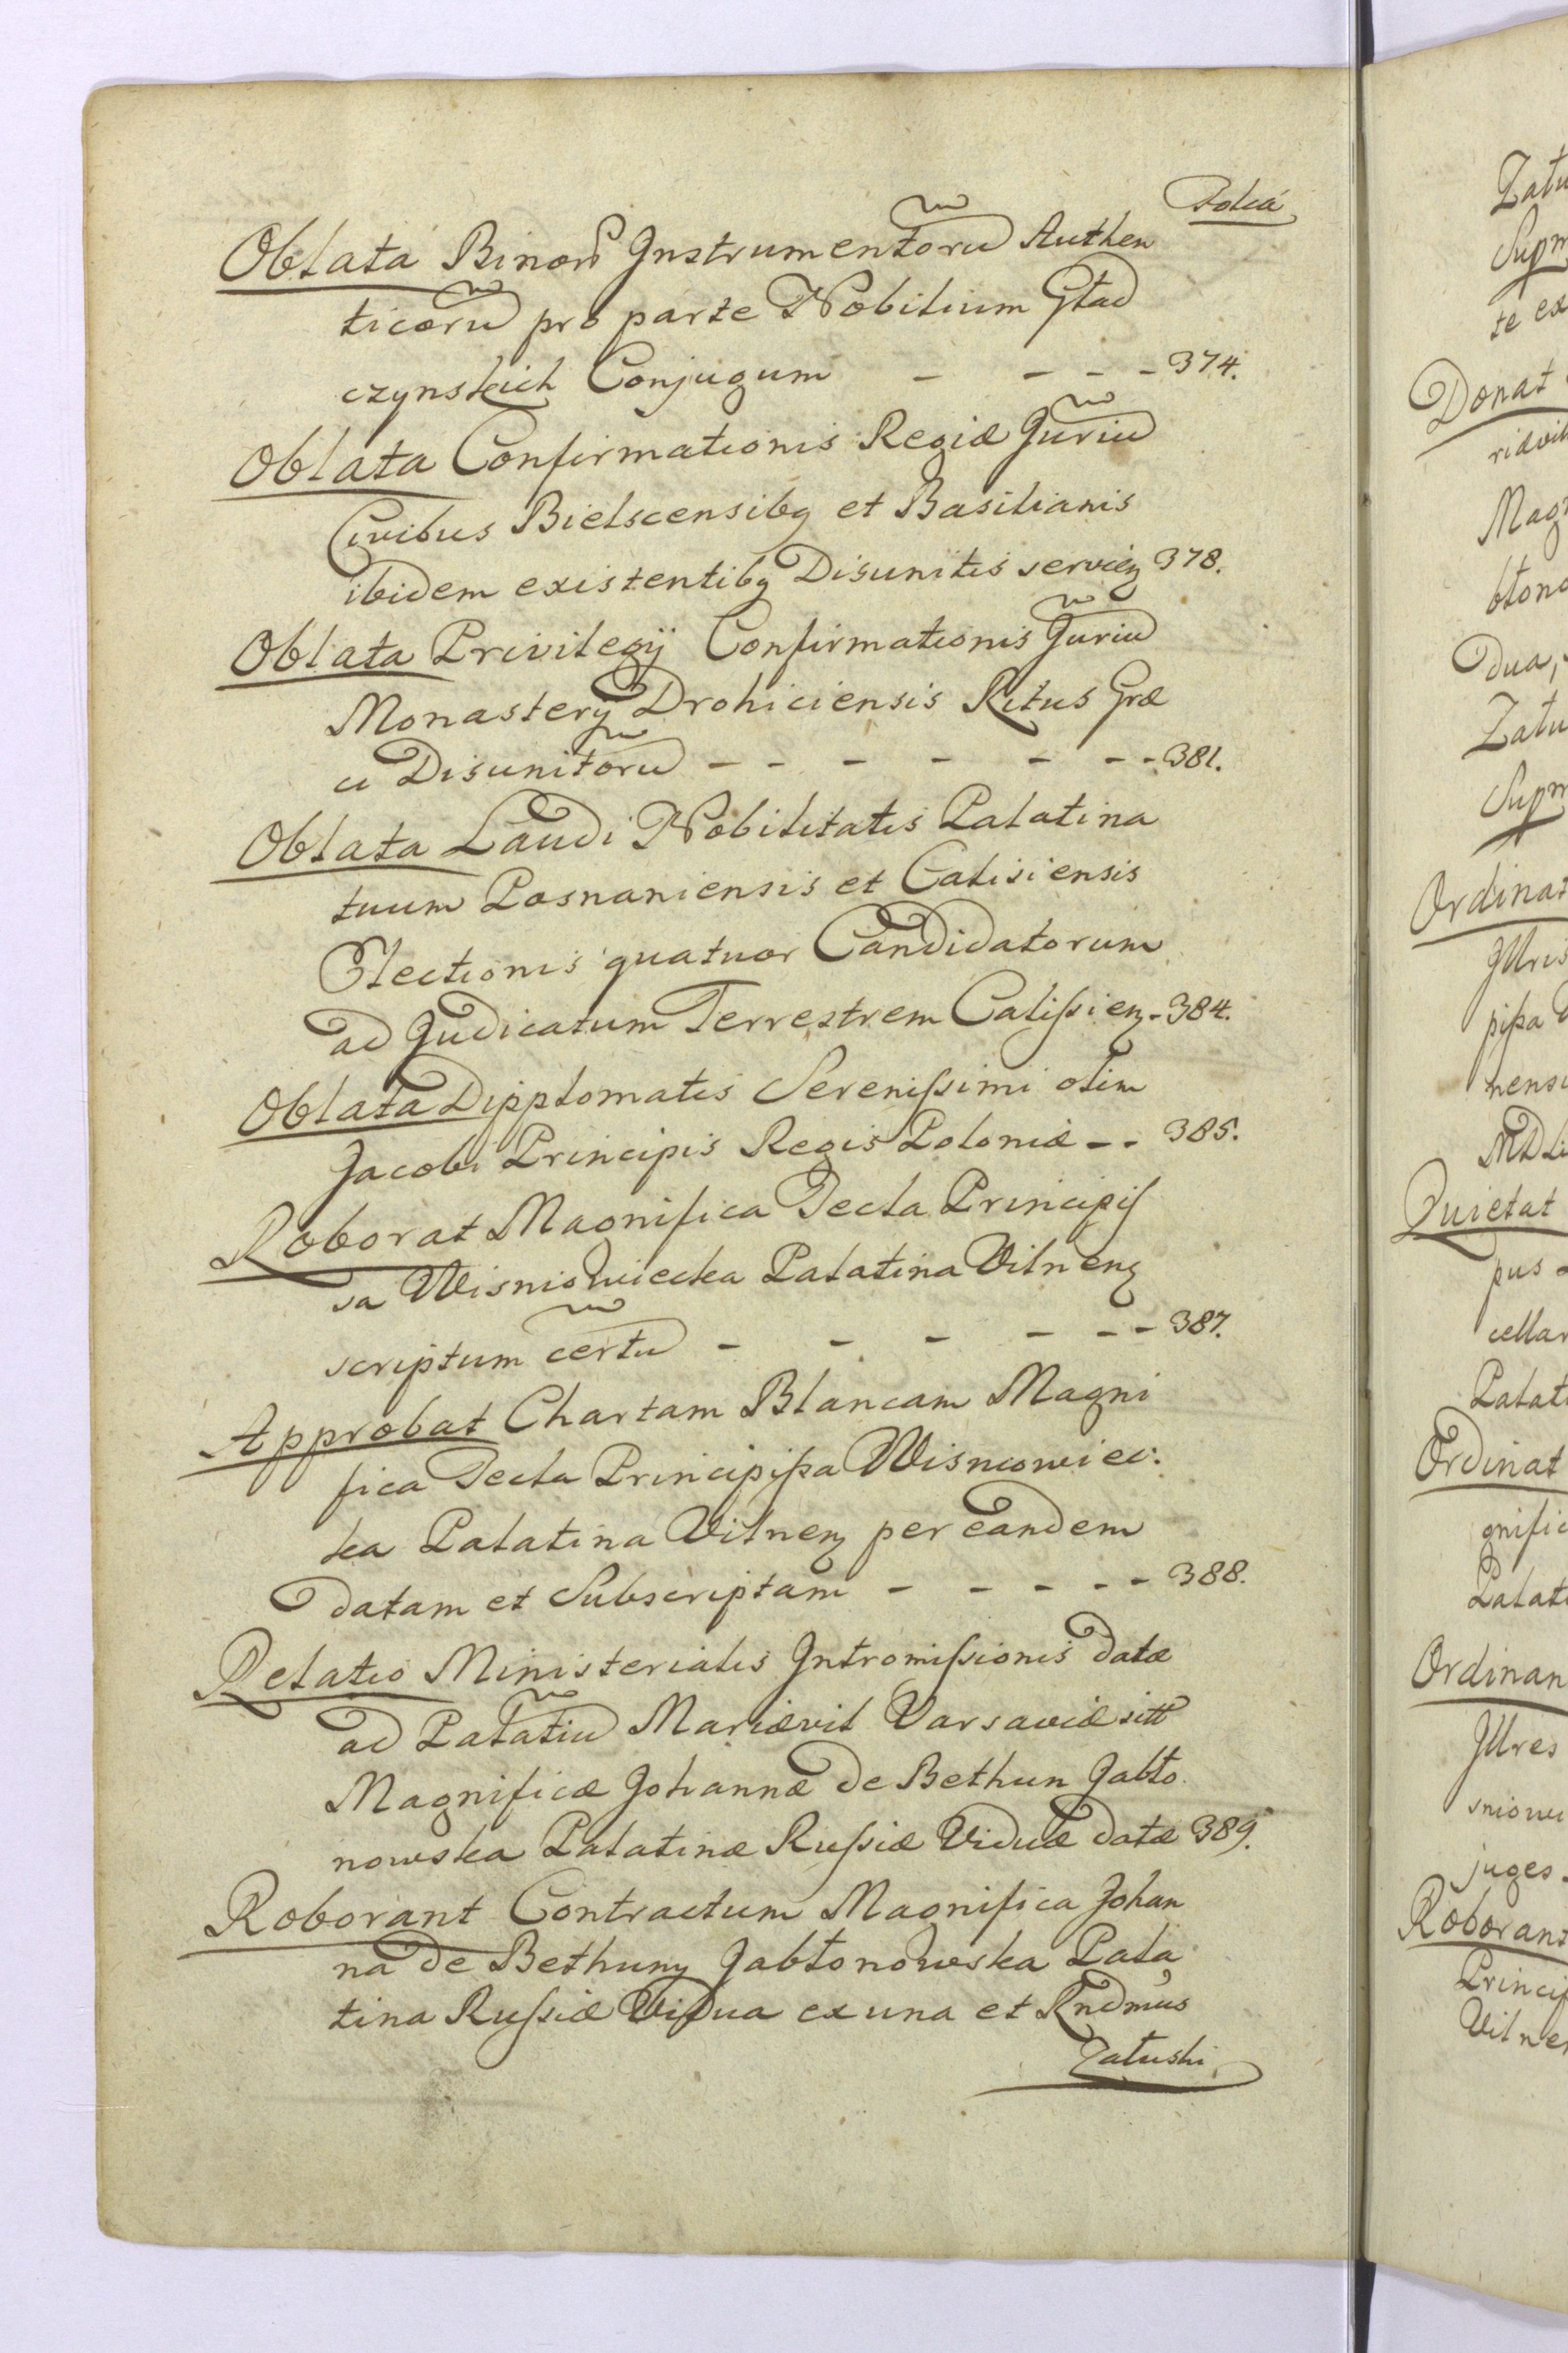 Folia
Oblata Binor Instrumentorũ Authen
ticorũ pro parte Nobilium Gład
czynskich Conjugum - - - - 374.
Oblata Confirmationis Regiæ Juriũ
Civibus Bielscensibq et Basilianis
ibidem existentibq Disunitis servien 378.
Oblata Privilegij Confirmationis Juriũ
Monasterij Drohiciensis Ritus Græ
ci Disunitorũ - - - - - - - 381.
Oblata Laudi Nobilitatis Palatina
tuum Posnaniensis et Calisiensis
Electionis quatuor Candidatorum
ad Judicatum Terrestrem Calißien - 384.
Oblata Dipplomatis Serenißimi olim
Jacobi Principis Regis Poloniæ - - 385.
Roborat Magnifica Tecla Principis
sa Wisniowiecka Palatina Vilnenz
scriptum certũ - - - - - - 387.
Approbat Chartam Blancam Magni
fica Tecla Principißa Wisniowiec:
ka Palatina Vilnenz per eandem
datam et Subscriptam - - - - - 388.
Relatio Ministerialis Intromißionis datæ
ad Palatiũ Mariævil Varsaviæ sitt
Magnificæ Johannæ de Bethun Jabło
nowska Palatinæ Rußiæ Viduæ datæ 389.
Roborant Contractum Magnifica Johan
na de Bethuny Jabłonowska Pala
tina Rußiæ Vidua ex una et Rndmus
Załuski
Zału
Supm
te ex
Donat
riævil
Mag
błono
dua,
Zału
Supm
Ordinat
Jllris
pißa
nensi
MDLi
Quietat
pus
cellar
Palat
Ordinat
gnific
Palat
Ordinan
Jllres
sniowi
juges
Roborant
Princip
Vilne